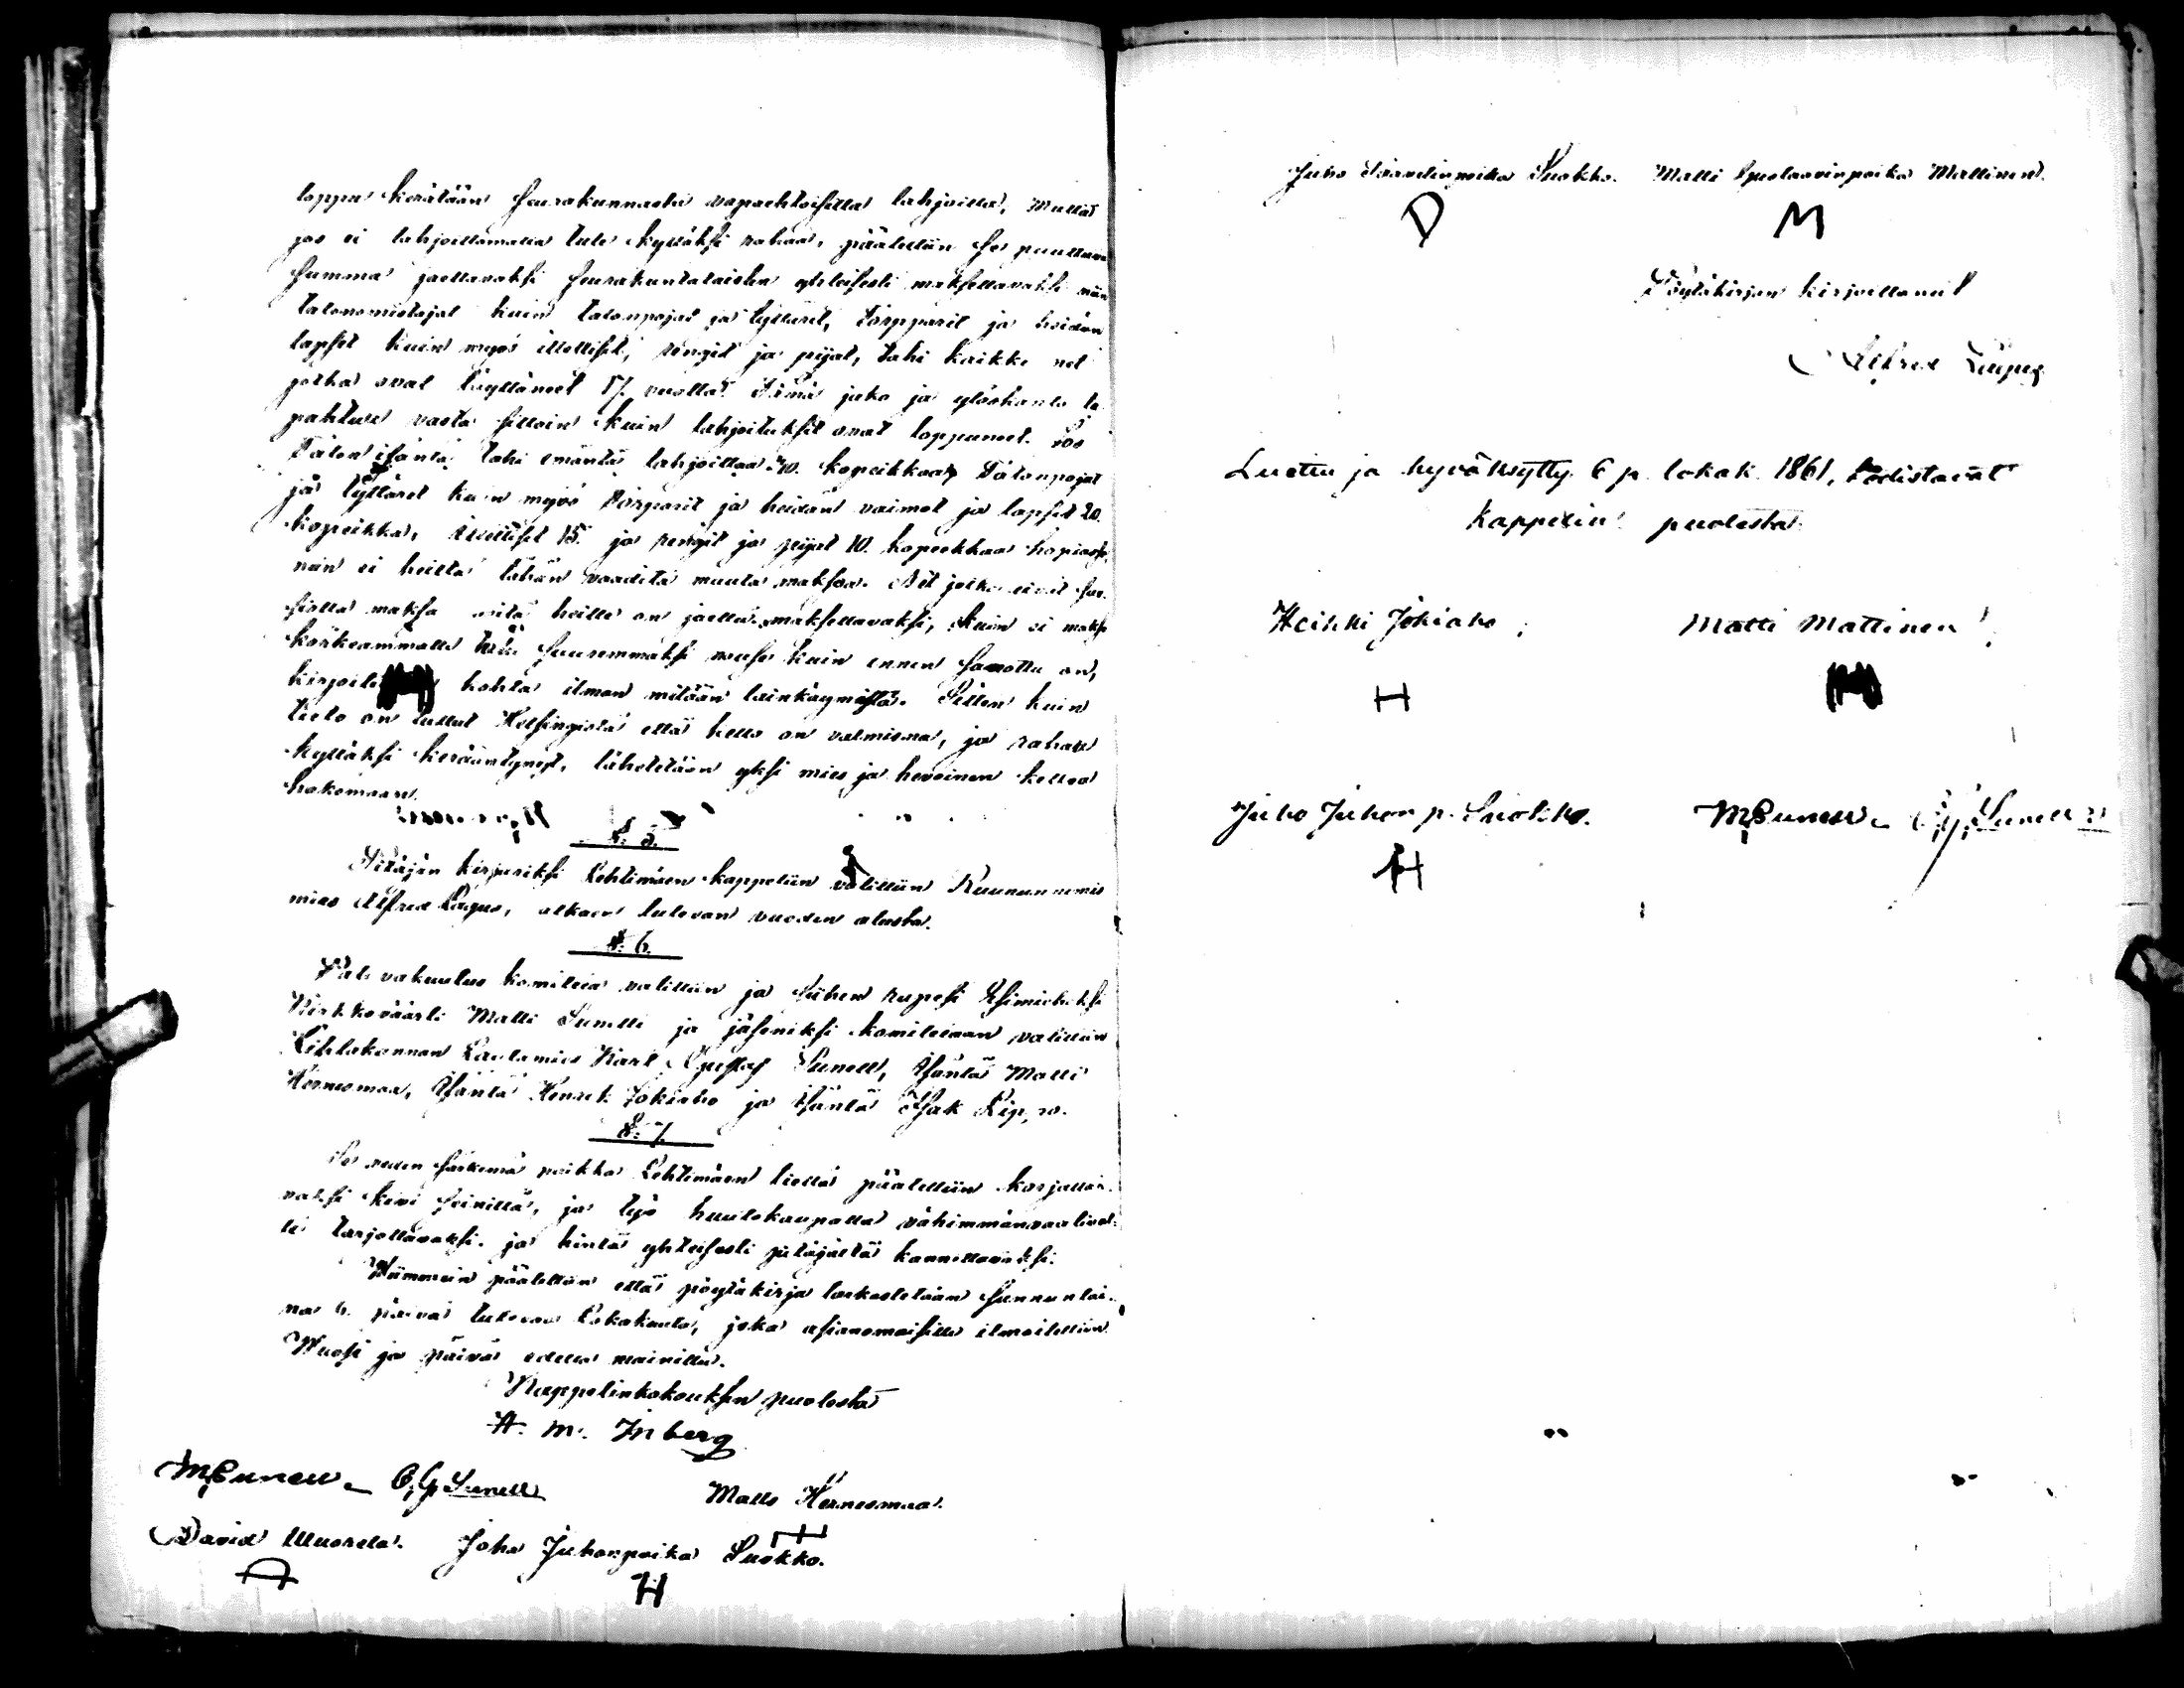 loppu kerätään seurakunnasta vapaehtoisilla lahjoilla, mutta
jos ei lahjoittamalla tule kylläksi rahaa, päätettiin se puuttuva
summa jaettavaksi seurakuntalaisten yhteisesti maksettavaksi niin
talonomistajat kuin talonpojat ja tyttäret, torpparit ja heidän
lapset kuin myös itelliset, rengit ja piiat, tahi kaikki net
jotka ovat täyttäneet 17. vuotta. Tämä jako ja ylöskanto ta-
pahtuu vasta silloin kuin lahjoitukset ovat loppuneet. Jos
Talon isäntä tahi emäntä lahjoittaa 40. kopeikkaa, Talonpojat
ja tyttäret kuin myös torparit ja heidän vaimot ja lapset 20.
kopeikka, itelliset 15. ja rengit ja piijat 10. kopeekkaa hopiassa
niin ei heiltä tähän vaadita muuta maksoa. Net jotka eivät
maksa mitä heille on jaettu maksettavaksi, kuin ei maksu
korkeammalle tule suuremmaksi nuse kuin ennen sanottu on,
kohta ilman mitään lainkäymistä. Sitten kuin
tieto on tullut Helsingistä että kello on valmisna, ja rahaa
kylläksi kerääntynyt, lähetetään yksi mies ja hevoinen kelloa
hakemaan.
§. 5.
Pitäjän kirjuriksi Lehtimäen kappeliin valittiin Ruununnimis
mies Alfred Lagus, alkaen tulevan vuoden alusta.
§. 6.
Palo vakuutus komiteea valittiin ja siihen rupesi Esimieheksi
Kirkkoväärti Matti Sunelli ja jäseniksi komiteeaan valittiin
Kihlakunnan Lautamies Karl Gustaf Sunell, Isäntä Matti
Hernesmaa, Isäntä Henrik Jokiaho ja Isäntä Isak
§. 7.
Se veden särkemä paikka Lehtimäen tiellä päätettiin korjatta-
vaksi kivi seinillä, ja työ huutokaupalla vähimmänvaatival-
le tarjottavaksi. ja hinta yhteisesti pitäjältä kannettavaksi.
Viimmein päätettiin että pöytäkirja tarkastetaan Sunnuntai-
na 6. päivä tulevaa Lokakuuta, joka asianomaisille ilmoitettiin.
Wuosi ja päivä edellä mainittu.
Kappelinkokouksen puolesta
A. M. Inberg
M Sunell. C. G Sunell Matts Hernesmaa.
David Wuorela. Joha Juhonpoika Suokko.
H
Juho Taavetinpoika Suokko. Matti Kustaavinpoika Mattinen.
D M
Pöytäkirjan kirjoittanut
Alfred Lagus
Luettu ja hyväksytty 6 p. lokak. 1861, todistavat
Kappelin puolesta
Heikki Jokiaho, Matti Mattinen
H
Juho Juhon p. Suokko. M Sunell. C. G. Sunell
H